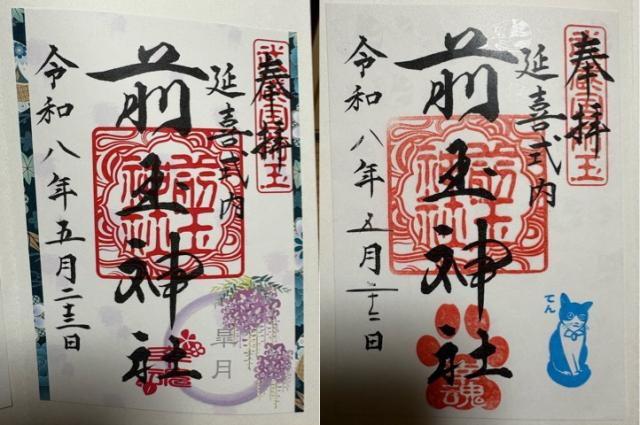 奉拝
延喜式内
前玉神社
令和八年五月二十三日
前玉神社
皐月
奉拝
延喜式内
前玉神社
令和八年五月
日
前玉神社
幸魂
てん